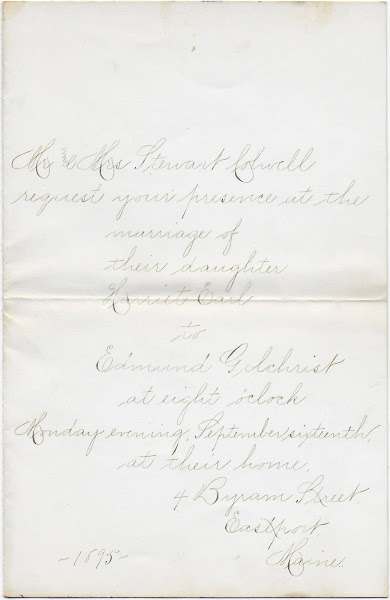 Mr & Mrs Stewart Colwell
request your presence at the
marriage of
their daughter
Harriet Earl
to
Edmund Gilchrist
at eight o'clock
Monday evening, September sixteenth,
at their home,
4 Byram Street.
Eastport.
Maine.
-1895-